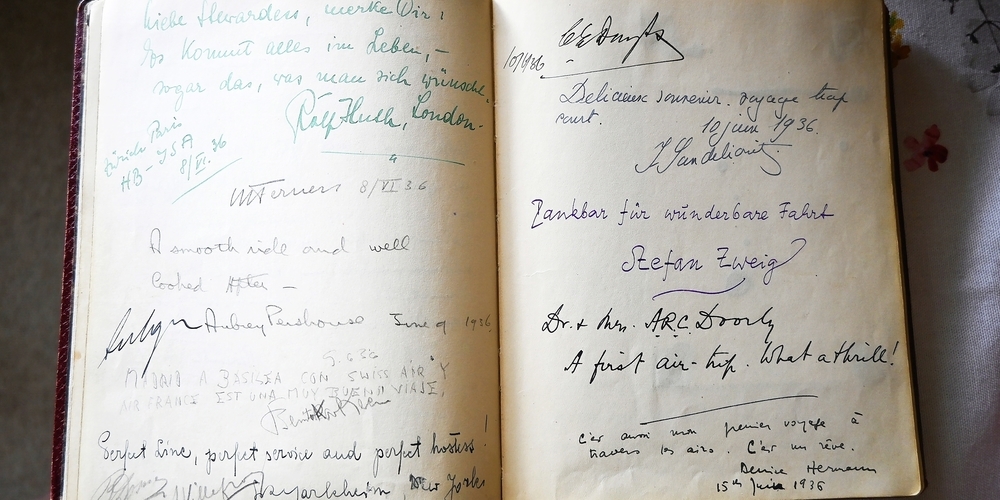 Liebe Stewardess, merke Dir:
Es kommt alles im Leben,–
sogar das, was man sich wünscht.
Rolf Hush, London.
Zürich Paris
HB–ISA
8/VI. 36
8/VI 36
A smooth ride and well
looked After –
Aubrey Penshouse June 9 1936
9.6 36
MADRID A BASILEA CON SWISS AIR Y
AIR FRANCE EST UNA MUY BUENO VIAJE.
Perfect Line, perfect service and perfect hostess!
New York
10/9/36
Delicieux souvenir. voyage trop
court.
10 juin 1936.
Dankbar für wunderbare Fahrt
Stefan Zweig
Dr. & Mrs. A.R.C. Doorly
A first air-trip. What a thrill!
C'est aussi mon premier voyage à
travers les airs. C'est un rêve.
Denise Hermann
15th June 1936